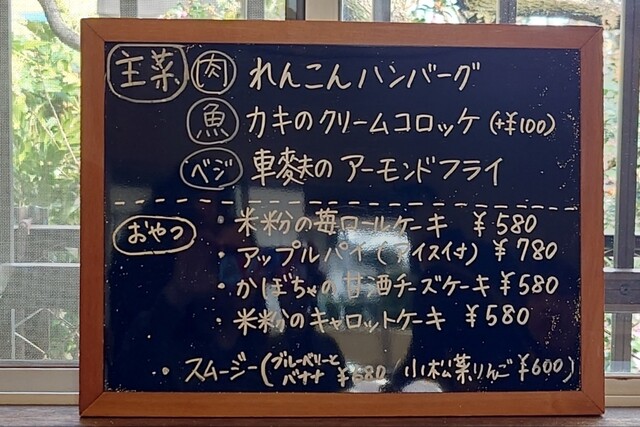 主菜 肉 れんこんハンバーグ
魚 カキのクリームコロッケ (+¥100)
ベジ 車麩のアーモンドフライ
おやつ ・米粉の苺ロールケーキ ¥580
・アップルパイ(アイス付) ¥780
・かぼちゃの甘酒チーズケーキ ¥580
・米粉のキャロットケーキ ¥580
・スムージー(ブルーベリーとバナナ ¥680 小松菜りんご ¥600)